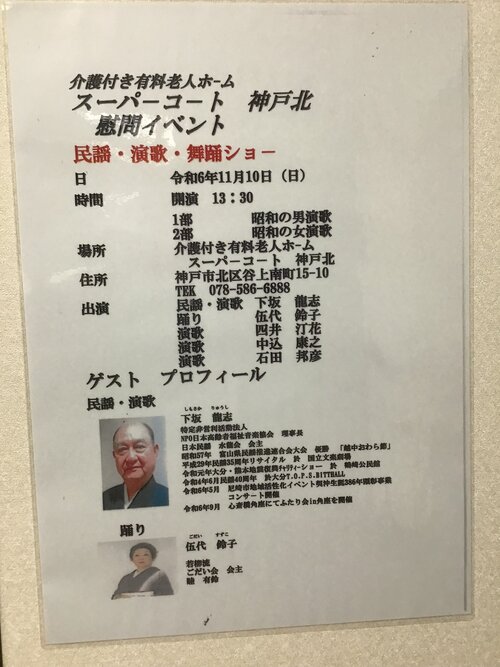 介護付き有料老人ホーム
スーパーコート 神戸北
慰問イベント
民謡・演歌・舞踊ショー
日 令和6年11月10日（日）
時間 開演 13：30
1部 昭和の男演歌
2部 昭和の女演歌
場所 介護付き有料老人ホーム
スーパーコート 神戸北
住所 神戸市北区谷上南町15-10
TEK 078-586-6888
出演 民謡・演歌 下坂 龍志
踊り 伍代 鈴子
演歌 四井 汀花
演歌 中込 康之
演歌 石田 邦彦
ゲスト プロフィール
民謡・演歌
しもさか りゅうし
下坂 龍志
特定非営利活動法人
NPO日本高齢者福祉音楽協会 理事長
日本民謡 水龍会 会主
昭和57年 富山県民謡推進連合会大会 優勝 「越中おわら節」
平成29年民謡35周年リサイタル 於 国立文楽劇場
令和元年大分・熊本地震復興ﾁｬﾘﾃｨｰショー 於 鶴崎公民館
令和4年6月民謡40周年 於大分T.O.P.S.BITTHALL
令和5年5月 尼崎市地域活性化イベント契沖生誕386年顕彰事業
コンサート開催
令和6年9月 心斎橋角座にてふたり会in角座を開催
踊り
ごだい すずこ
伍代 鈴子
若柳流
ごだい会 会主
睦 有鈴